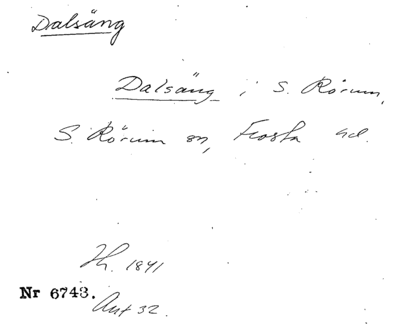 Dalsäng
Dalsäng i S. Rörum,
S. Rörum sn, Frosta hd.
Jh. 1841
Nr 6743.
Ant 32.